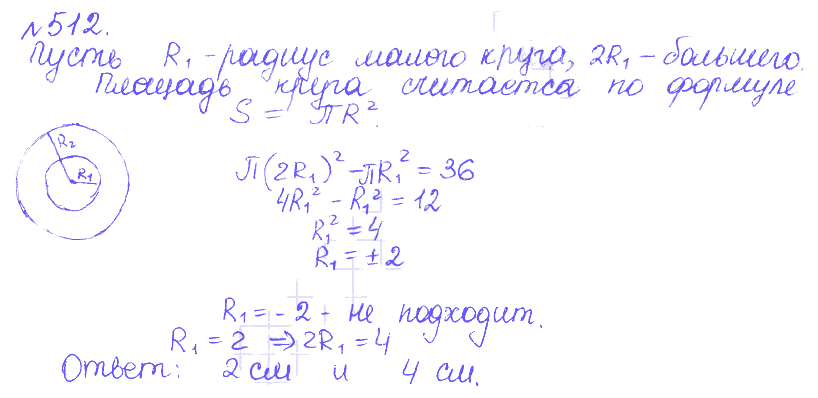 №512.
Пусть R₁ - радиус малого круга, 2R₁ - большего.
Площадь круга считается по формуле
S = πR².
R₂
R₁
π(2R₁)² - πR₁² = 36
4R₁² - R₁² = 12
R₁² = 4
R₁ = ± 2
R₁ = - 2 - не подходит.
R₁ = 2 ⇒ 2R₁ = 4
Ответ: 2 см и 4 см.